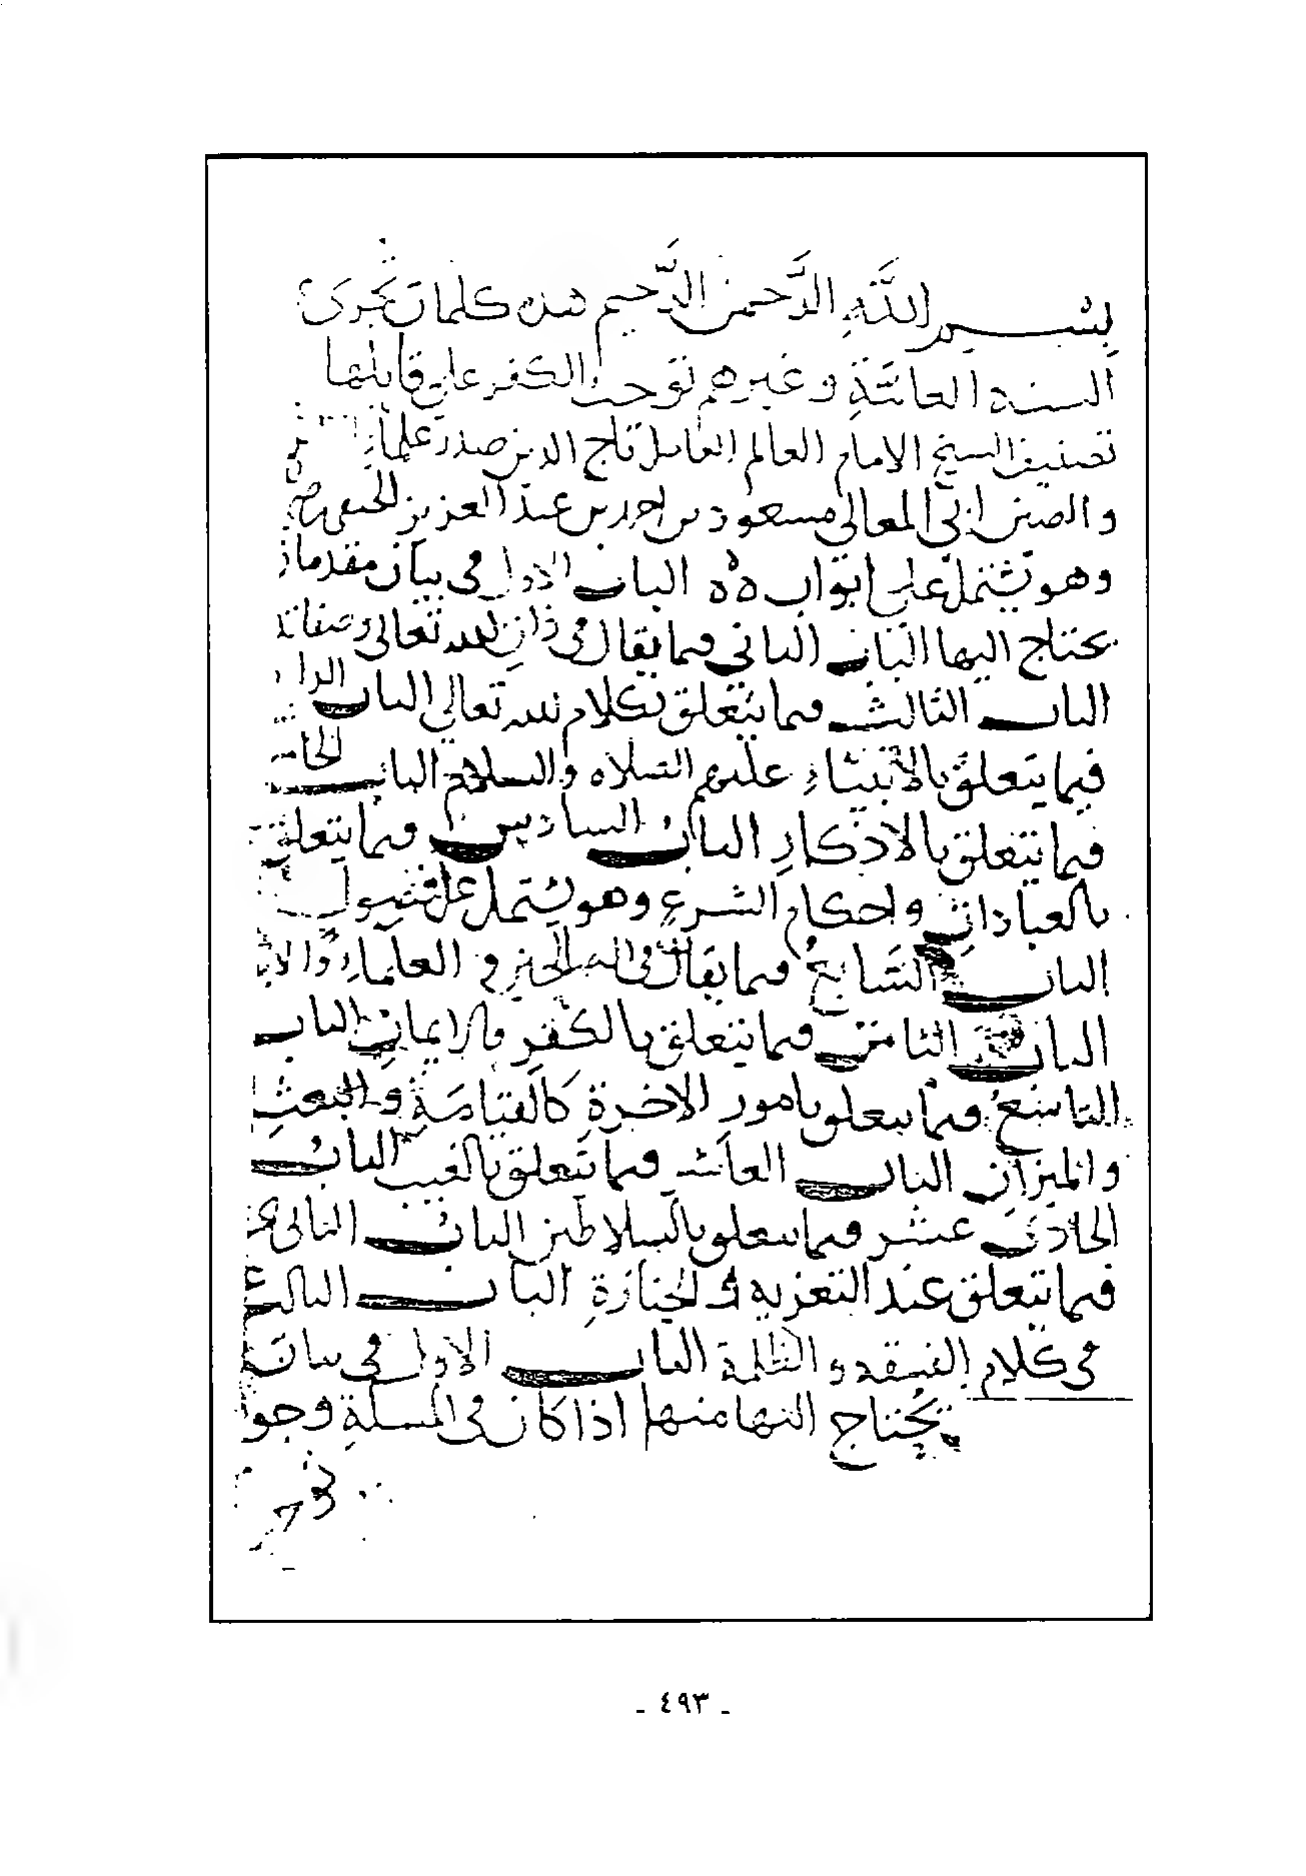 بسم الله الرَّحمن الرَّحيم هذه كلمات تجرى
السنة العامّة وغيرهم توجب الكفر على قايلها
تصنيف الشيخ الامام العالم العامل تاج الدين صدر علما
والصين ابى المعالى مسعود بن احمد بن عبد العزيز الحنفى
وهو يشتمل على ابواب ٥٥ الباب الاول فى بيان مقدمات
يحتاج اليها الباب الثانى فيما يقال فى ذات الله تعالى وصفاته
الباب الثالث فيما يتعلق بكلام الله تعالى الباب
فيما يتعلق بالأنبياء عليهم الصلاة والسلام الباب الخامس
فيما يتعلق بالاذكار الباب السادس فيما يتعلق
بالعبادات واحكام الشرع وهو يشتمل على فصول
الباب السّابع فيما يقال فى العلماء
الباب الثامن فيما يتعلق بالكفر والايمان الباب
التاسع فيما يتعلق بامور الاخرة كالقيامة والبعث
والميزان الباب العاشر فيما يتعلق بالغيب الباب
الحادى عشر فيما يتعلق بالسلاطين الباب الثانى
فيما يتعلق عند التعزيه والجنازة الباب الثالث
فى كلام الفسقه والظلمة الباب الاول فى بيان
يحتاج اليها منها اذا كان فى المسلة وجوه
- ٤٩٣ -